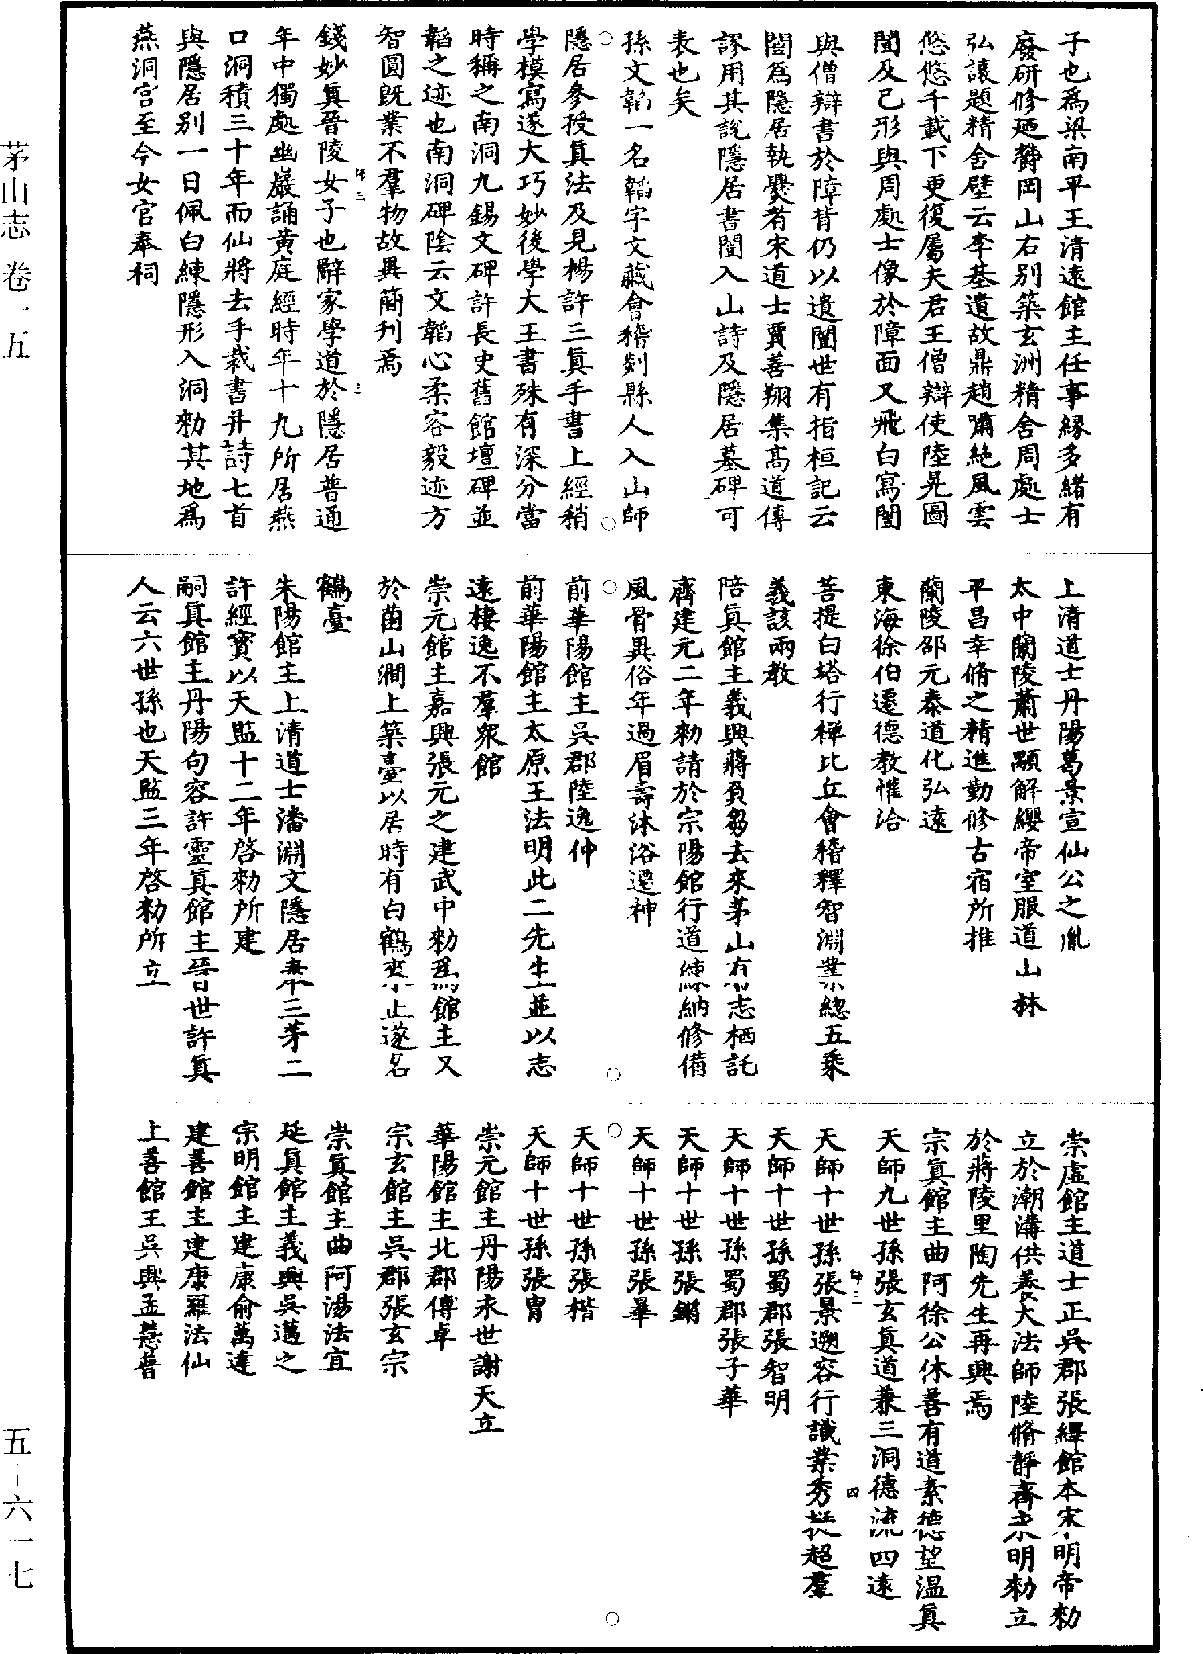 子也爲梁南平王清遠館主任事縁多緒有
廢研修廼欝岡山右别築玄洲精舍周處士
弘讓題精舍壁云李基遺故鼎趙瓛絶風雲
悠悠千載下更復屬夫君王僧辯使陸晃圖
闓及己形與周處士像於障面又飛白寫闓
與僧辯書於障背仍以遺闓世有指桓記云
闓爲隱居執㸑者宋道士賈善翔集髙道傳
謬用其說隱居書闓入山詩及隱居墓碑可
表也矣
孫文韜一名韜字文藏會稽剡縣人入山師
隱居參授真法及見楊許三真手書上經稍
學模寫遂大巧妙後學大王書殊有深分當
時稱之南洞九錫文碑許長史舊館壇碑並
韜之迹也南洞碑陰云文韜心柔容毅迹方
智圓旣業不羣物故異簡刋焉
錢妙真晉陵女子也辭家學道於隱居普通
年中獨處幽巖誦黃庭經時年十九所居燕
口洞積三十年而仙將去手裁書并詩七首
與隱居别一日佩白練隱形入洞勑其地爲
燕洞宫至今女官奉祠
上清道士丹陽葛景宣仙公之胤
太中蘭陵蕭世顯解纓帝室服道山林
平昌幸脩之精進勤修古宿所推
蘭陵邵元泰道化弘遠
東海徐伯遷德教惟洽
菩提白塔行禪比丘會稽釋智淵業總五乘
義該兩教
陪真館主義興蔣負芻去來茅山有志栖託
齊建元二年勑請於宗陽館行道練納修備
風骨異俗年過眉壽沐浴遷神
前華陽館主吳郡陸逸仲
前華陽館主太原王法明此二先生並以志
遠棲逸不羣衆館
崇元館主嘉興張元之建武中勑爲館主又
於菌山澗上築臺以居時有白鶴來止遂名
鶴臺
朱陽館主上清道士潘淵文隱居奉三茅二
許經寳以天監十二年啓勑所建
嗣真館主丹陽句容許靈真館主晉世許真
人云六世孫也天監三年啓勑所立
崇虛館主道士正吳郡張繹館本宋明帝勑
立於潮溝供養大法師陸脩靜齊永明勑立
於蔣陵里陶先生再興焉
宗真館主曲阿徐公休善有道素德望温真
天師九世孫張玄真道兼三洞德流四遠
天師十世孫張景遡容行識業秀挺超羣
天師十世孫蜀郡張智明
天師十世孫蜀郡張子華
天師十世孫張鏘
天師十世孫張畢
天師十世孫張楷
天師十世孫張胄
崇元館主丹陽永世謝天立
華陽館主北郡傅卓
宗玄館主吳郡張玄宗
崇真館主曲阿湯法宜
延真館主義興吳邁之
宗明館主建康俞萬達
建善館主建康羅法仙
上善館王吳興孟慧普
茅山志 卷一五
五－六一七